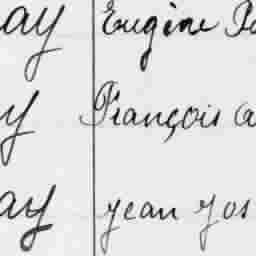 ay Eugène
y François
ay Jean Jos